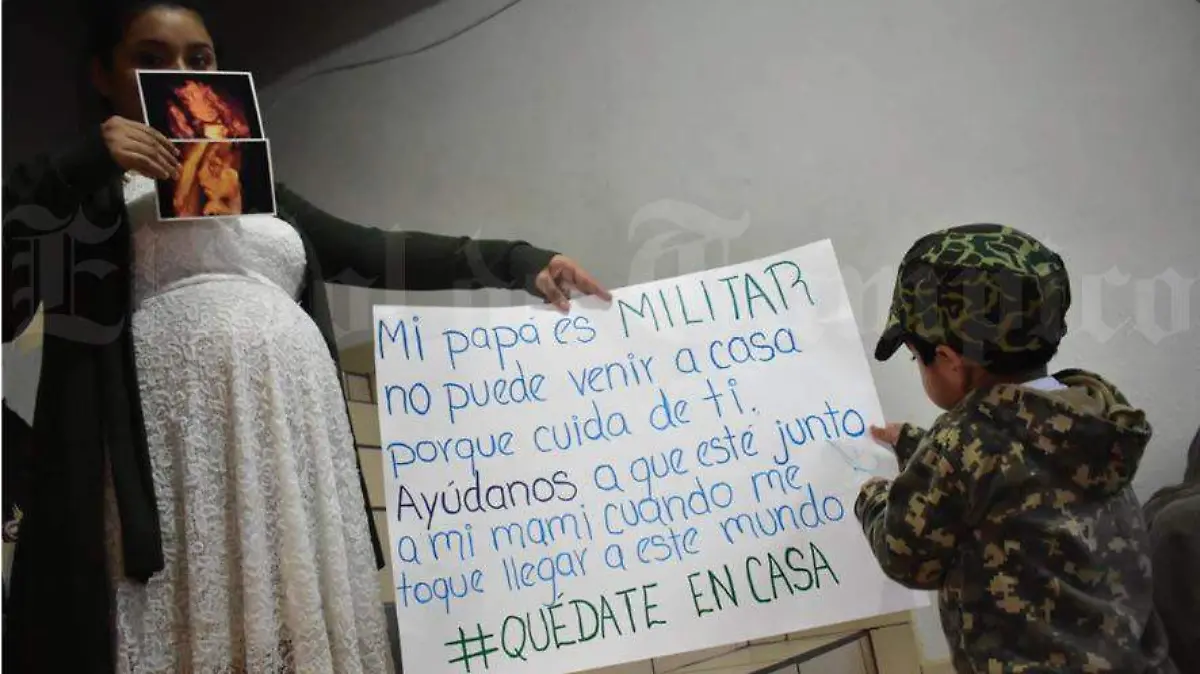 Mi papá es MILITAR
no puede venir a casa
porque cuida de ti.
Ayúdanos a que esté junto
a mi mami cuándo me
toque llegar a este mundo
#QUÉDATE EN CASA
El Sol de Tampico